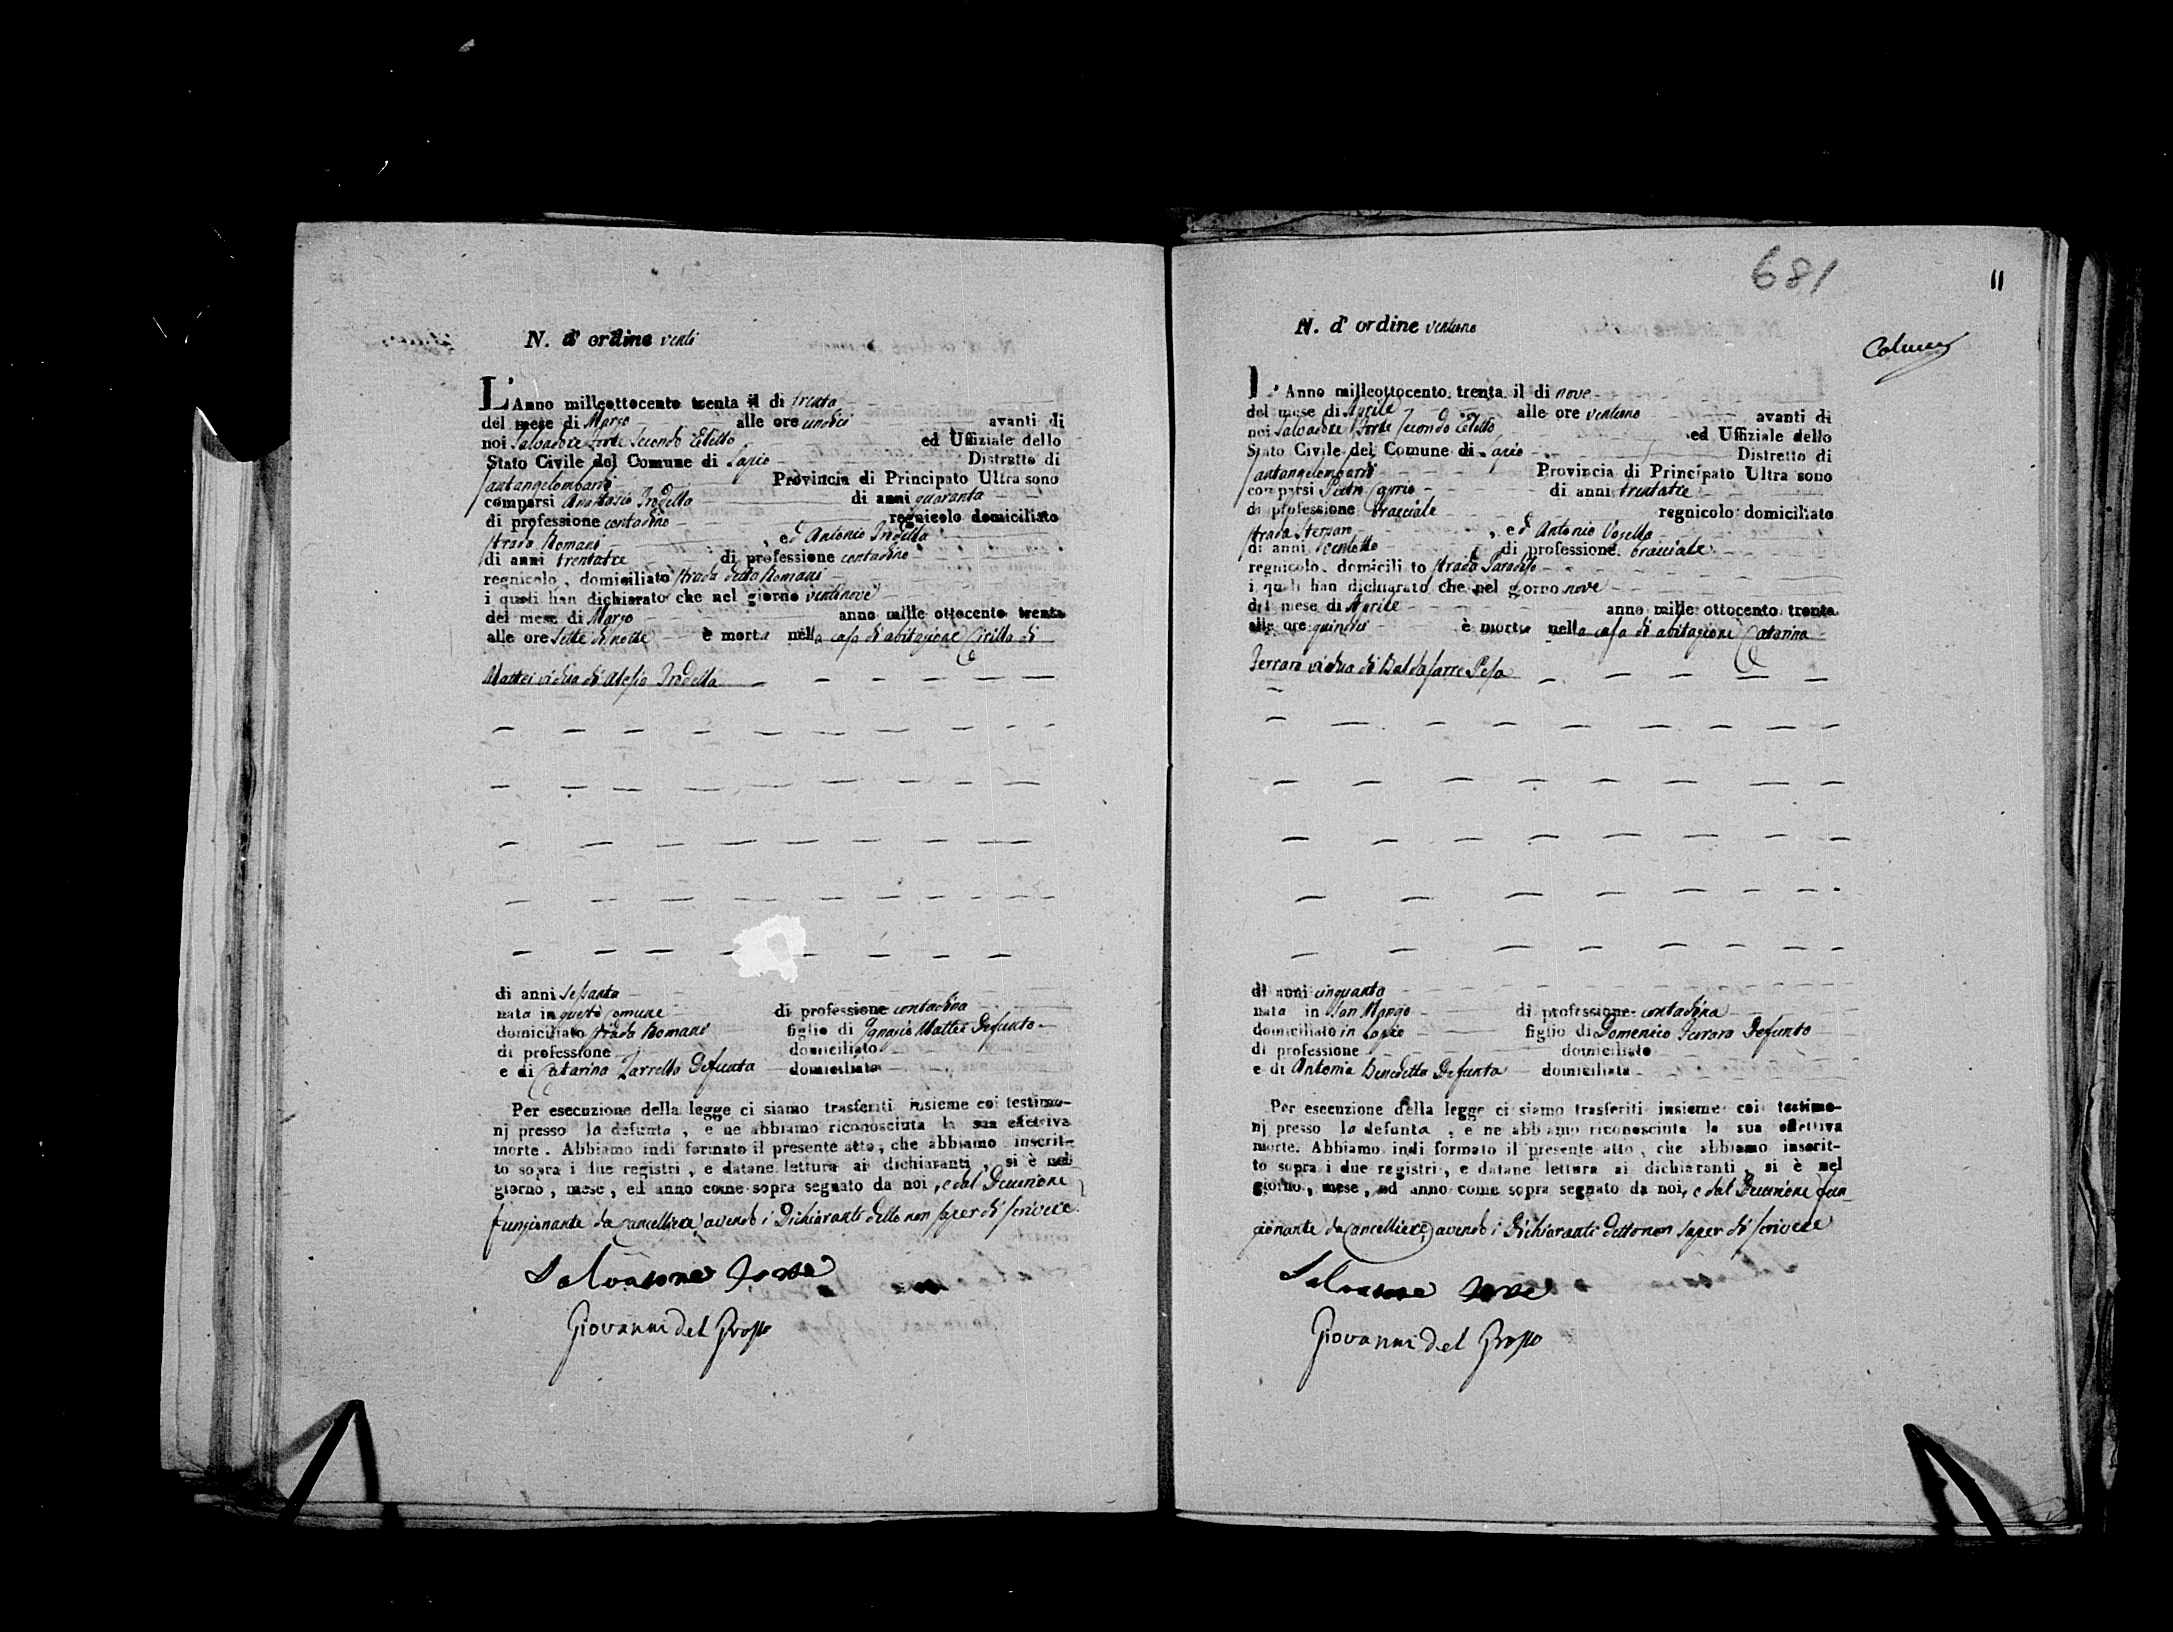 N. d' ordine venti
L'Anno milleottocento trenta il di trenta
del mese di Marzo alle ore undici avanti di
noi Salvadore Forte Secondo Eletto ed Uffiziale dello
Stato Civile del Comune di Lapio Distretto di
Santangelombardi Provincia di Principato Ultra sono
comparsi Anastasio Trodella di anni quaranta
di professione contadino regnicolo domiciliato
strada Romani , ed Antonio Trodella
di anni trentatre di professione contadino
regnicolo , domiciliato strada detta Romani
i quali han dichiarato che nel giorno ventinove
del mese di Marzo anno mille ottocento trenta
alle ore sette di notte è morta nella casa di abitazione Cirilla di
Mattei vidua di Alesio Trodella
di anni sessanta
nata in questo comune di professione contadina
domiciliato strada Romani figlio di Ignazio Mattei Defunto
di professione domiciliato
e di Catarina Zarrella Defunta domiciliata
Per esecuzione della legge ci siamo trasferiti insieme coi testimo-
nj presso la defunta , e ne abbiamo riconosciuta la sua effettiva
morte . Abbiamo indi formato il presente atto , che abbiamo inscrit-
to sopra i due registri , e datane lettura ai dichiaranti , si è nel
giorno , mese , ed anno come sopra segnato da noi , e dal Decurione
funzionante da Cancelliere, avendo i Dichiaranti detto non saper di scrivere
Salvatore Forte
Giovanni del Grosso
681
11
N. d' ordine ventuno
L' Anno milleottocento trenta il di nove
del mese di Aprile alle ore ventuno avanti di
noi Salvadore Forte Secondo Eletto ed Uffiziale dello
Stato Civile del Comune di Lapio Distretto di
Santangelombardi Provincia di Principato Ultra sono
comparsi Pietro Caprio di anni trentatre
di professione bracciale regnicolo domiciliato
strada , ed Antonio Vosella
di anni di professione bracciale
regnicolo domiciliato strada Paradiso
i quali han dichiarato che nel giorno nove
del mese di Aprile anno mille ottocento trenta
alle ore quindici è morta nella casa di abitazione Catarina
Ferraro vidua di Baldassarre Pesa
di anni cinquanta
nata in San Mango di professione contadina
domiciliato in Lapio figlio di Domenico Ferraro Defunto
di professione domiciliato
e di Antonia Benedetto Defunta domiciliata
Per esecuzione della legge ci siamo trasferiti insieme coi testimo-
nj presso la defunta , e ne abbiamo riconosciuta la sua effettiva
morte. Abbiamo indi formato il presente atto , che abbiamo inscrit-
to sopra i due registri , e datane lettura ai dichiaranti , si è nel
giorno , mese , ed anno come sopra segnato da noi, e dal Decurione fun-
zionante da Cancelliere, avendo i Dichiaranti detto non saper di scrivere
Salvatore Forte
Giovanni del Grosso